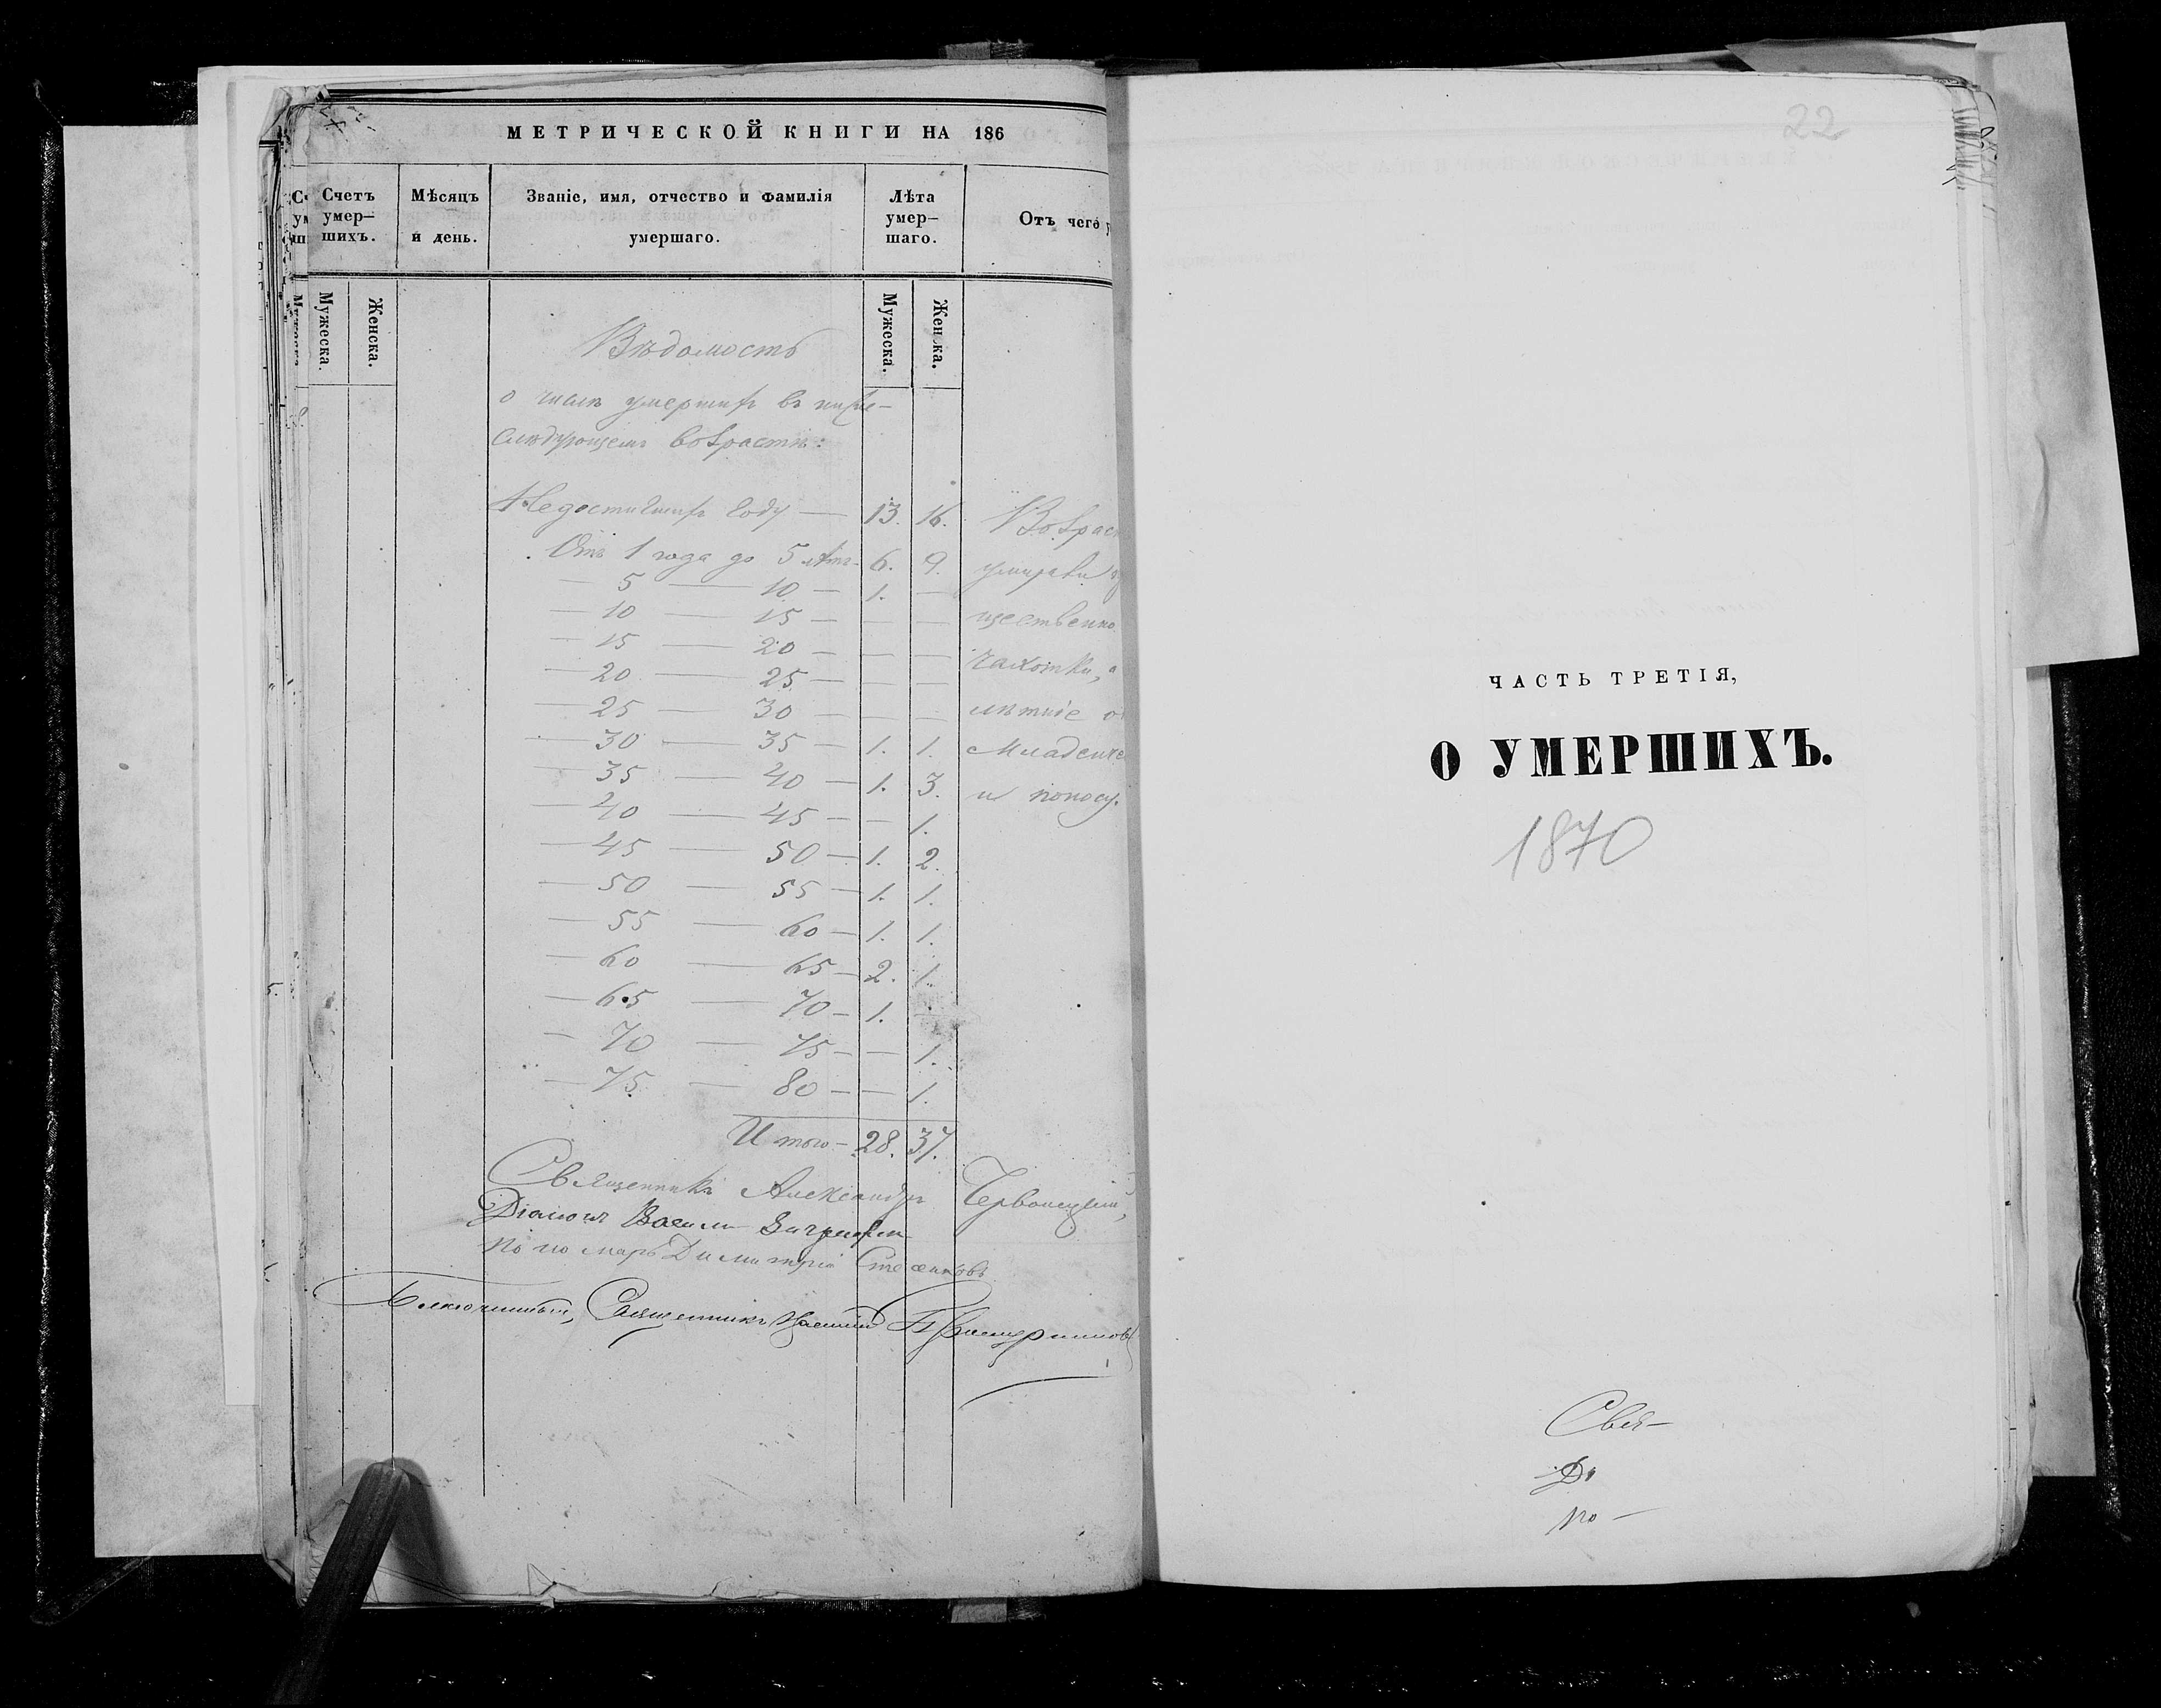 МЕТРИЧЕСКОЙ КНИГИ НА 186
Счетъ умер-шихъ.
Мѣсяцъ и день.
Званіе, имя, отчество и фамилія умершаго.
Лѣта умер-шаго.
Отъ чего
Мужеска.
Женска.
Мужеска.
Женска.
Вѣдомость
о числѣ умершихъ въ ниже-
слѣдующемъ возрастѣ:
Недостигшихъ году — 13. 16. Возрас
Отъ 1 года до 5 лѣтъ - 6. 9. умирали
— 5 — 10 — 1. —
— 10 — 15 — — — щественно
— 15 — 20 — — —
— 20 — 25 — — — чахотки,
— 25 — 30 — — — лѣтніе о
— 30 — 35 — 1. 1. Младенче
— 35 — 40 — 1. 3. и поносу.
— 40 — 45 — — 1.
— 45 — 50 — 1. 2.
— 50 — 55 — 1. 1.
— 55 — 60 — 1. 1.
— 60 — 65 — 2. 1.
— 65 — 70 — 1.
— 70 — 75 — — 1.
— 75 — 80 — — 1.
Итого — 28. 37.
Священникъ Александръ
Діаконъ Василій
Пономарь Димитрій
Благочинный, Священникъ
22
ЧАСТЬ ТРЕТІЯ,
О УМЕРШИХЪ.
1870
Свя-
Ді
По-